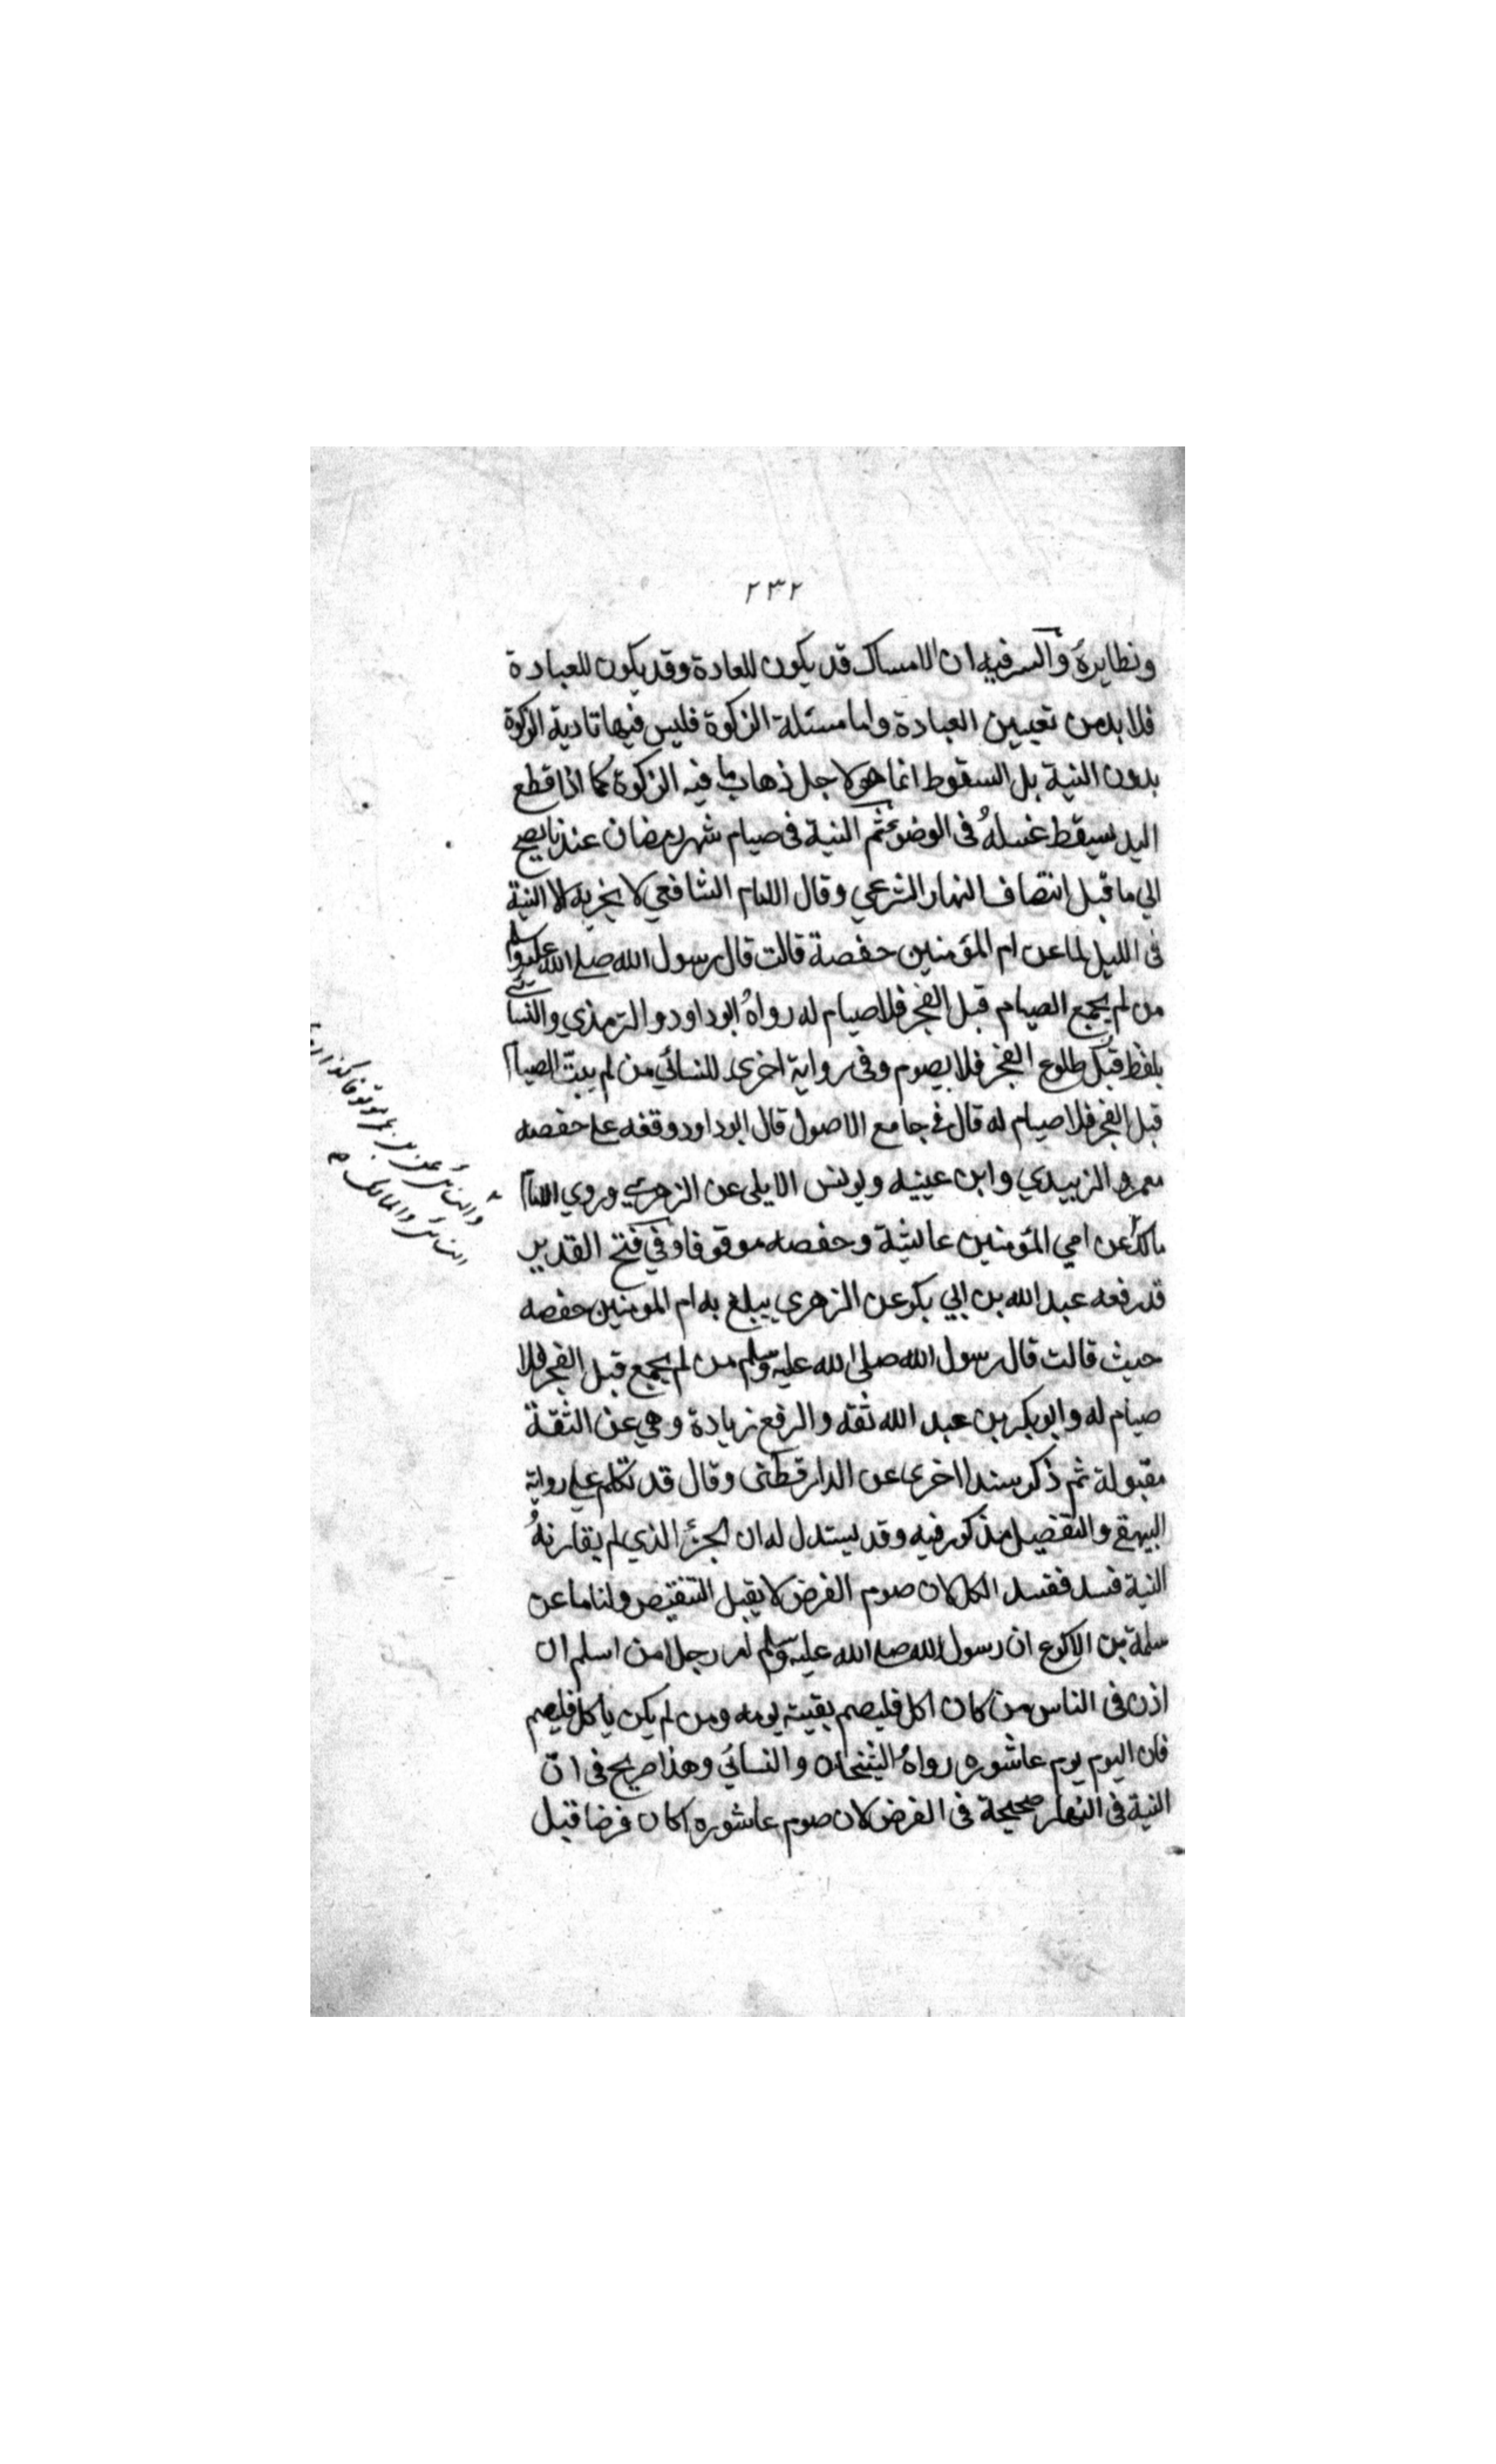 ٢٣٢
ونظايره والسر فيه ان الامساك قد يكون للعادة وقد يكون للعبادة
فلا بد من تعيين العبادة واما مسئلة الزكوة فليس فيها تادية الزكوة
بدون النية بل السقوط انما هو لاجل ذهاب ما فيه الزكوة كما اذا قطع
اليد يسقط غسله في الوضوء ثم النية في صيام شهر رمضان عندنا يصح
الي ما قبل انتصاف النهار الشرعي وقال الامام الشافعي لا يجزيه الا النية
في الليل لما عن ام المؤمنين حفصة قالت قال رسول الله صلے الله عليه وسلم
من لم يجمع الصيام قبل الفجر فلا صيام له رواه ابو داود والترمذي والنسائي
بلفظ قبل طلوع الفجر فلا يصوم وفي رواية اخرى للنسائي من لم يبت الصيام
قبل الفجر فلا صيام له قال في جامع الاصول قال ابو داود وقفه علے حفصه
معمر والزبيدي وابن عينيه ويونس الايلي عن الزهري وروي الامام
مالك عن امي المؤمنين عائشة وحفصه موقوفا وفي فتح القدير
قد رفعه عبد الله بن ابي بكر عن الزهري يبلغ به ام المومنين حفصه
حيث قالت قال رسول الله صلى الله عليه وسلم من لم يجمع قبل الفجر فلا
صيام له وابو بكر بن عبد الله ثقه والرفع زيادة وهي عن الثقة
مقبولة ثم ذكر سندا اخرى عن الدارقطنى وقال قد تكلم علي رواية
البيهقے والتفصيل مذكور فيه وقد يستدل له ان الجزء الذي لم يقارنه
النية فسد ففسد الكل لان صوم الفرض لا يقبل التنقيص ولنا ما عن
سلمة بن الاكوع ان رسول الله صلے الله عليه وسلم امر رجلا من اسلم ان
اذن في الناس من كان اكل فليصم بقيته يومه ومن لم يكن ياكل فليصم
فان اليوم يوم عاشوره رواه الشيخان والنسائي وهذا صريح في ان
النية في النهار صحيحة في الفرض لان صوم عاشوره كان فرضا قبل
والنسائي عن بن عمر موقوفا كذا
النسائي والمالك